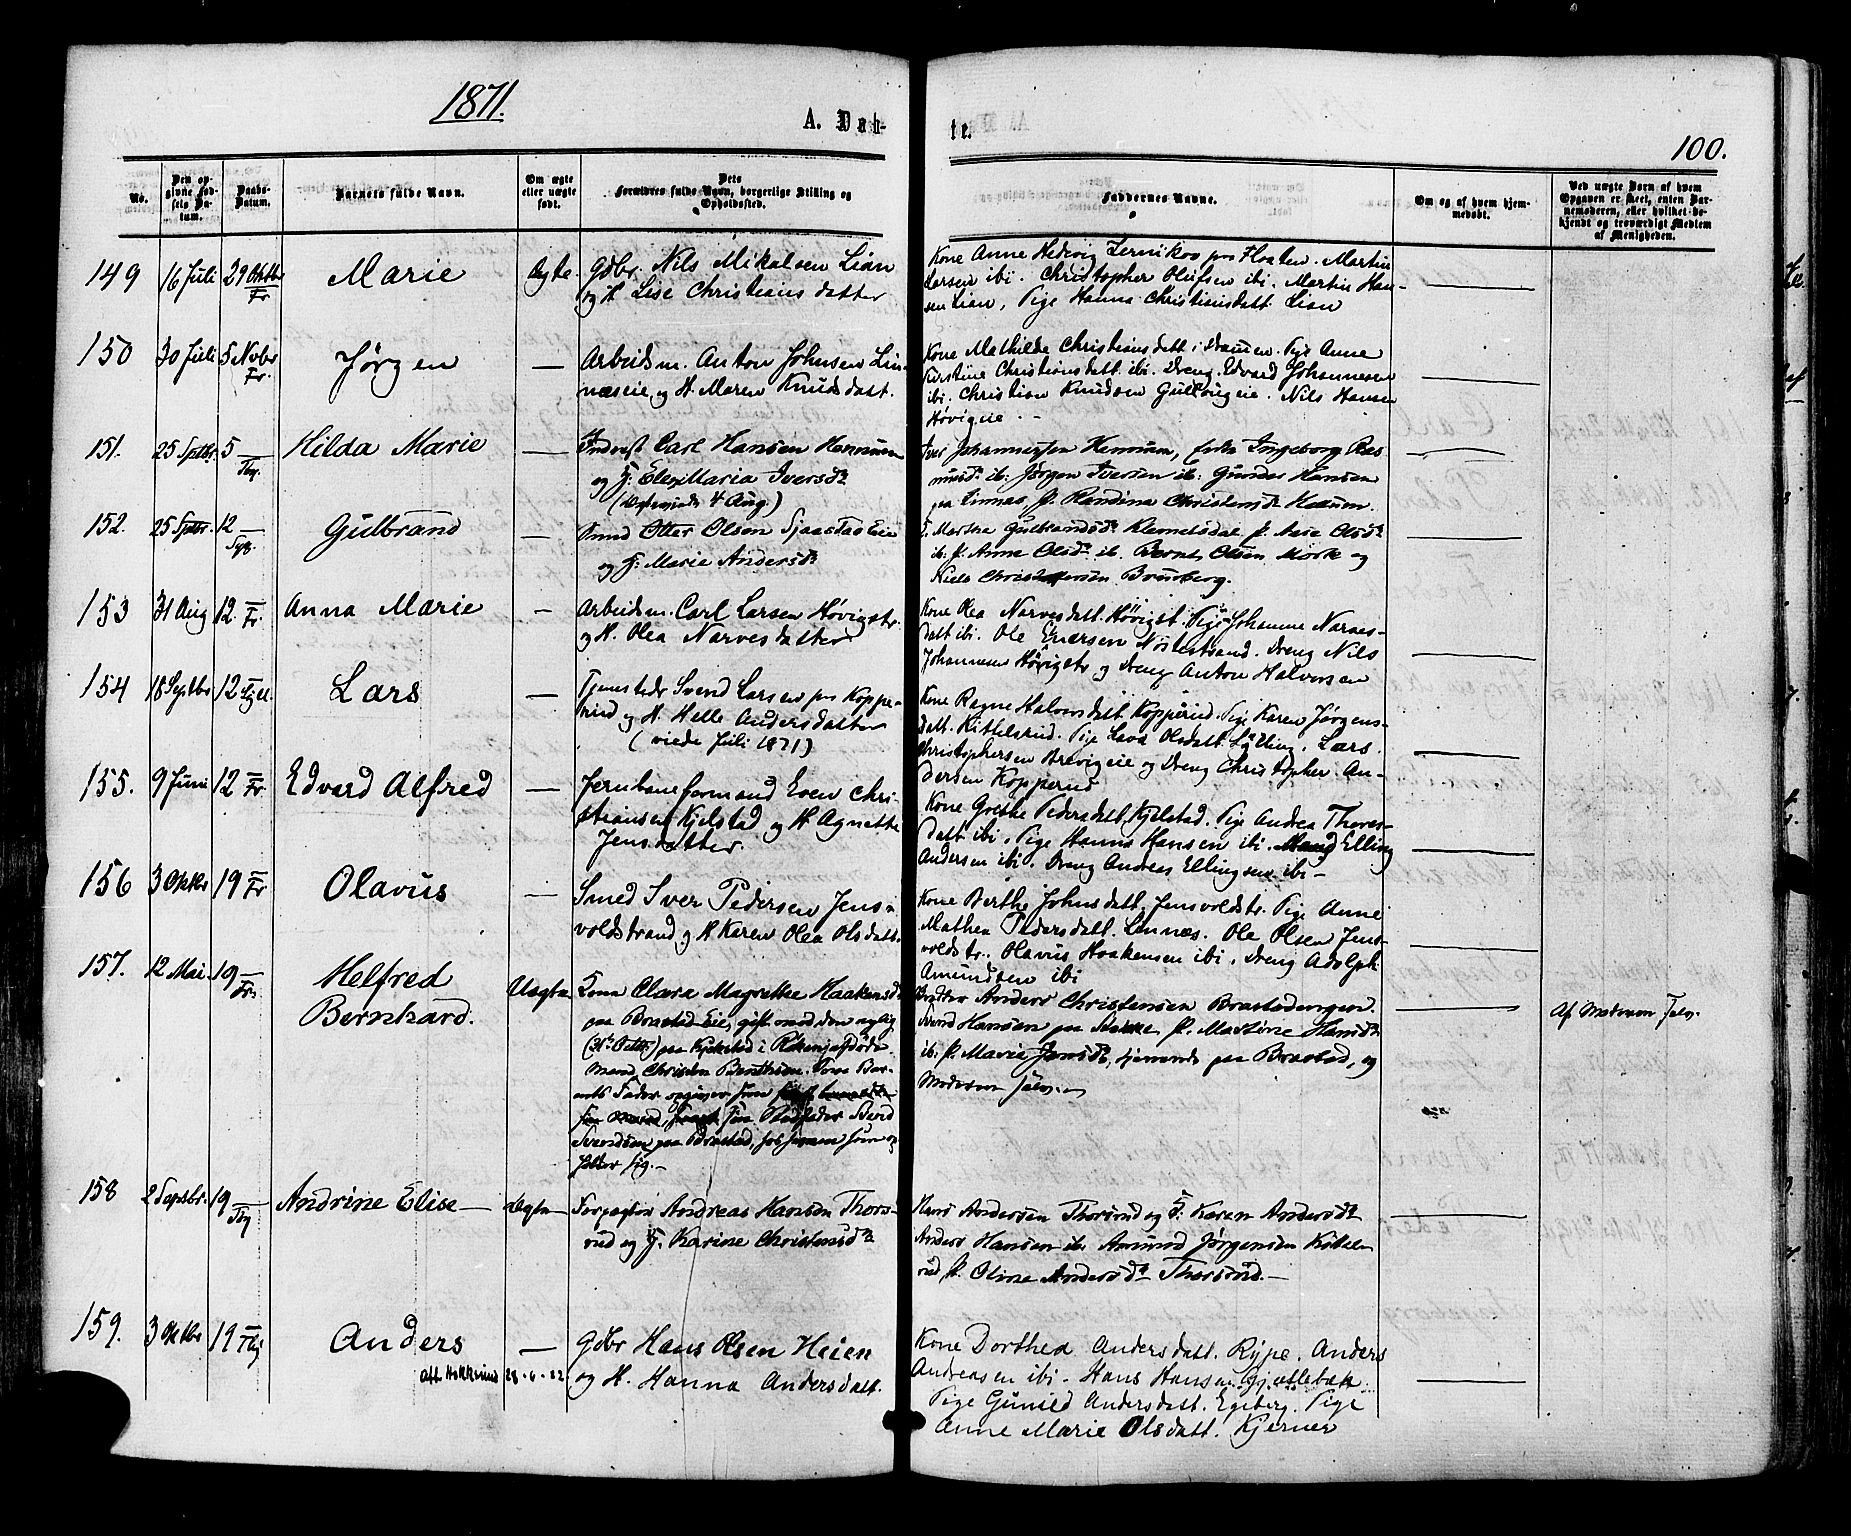 1871.
A. Daab-
te.
100.
No.
Den op-
givne Fød-
sels Da-
tum.
Daabs-
Datum.
Barnets fulde Navn.
Om ægte
eller uægte
født.
Dets
Forældres fulde Navn, borgerlige Stilling og
Opholdssted.
Faddernes Navne.
Om og af hvem hjem-
medøbt.
Ved uægte Barn af hvem
Opgaven er skeet, enten Bar-
nemoderen, eller hvilket be-
kjendt og troværdigt Medlem
af Menigheden.
149 16 Juli 29 Oktbr Fr Marie Ægte Gdbr. Nils Mikalsen Lian
og H. Lise Christiansdatter
Kone Anne Hedevig Jernikov paa Floaten. Martin
Larsen ibi. Christopher Olufsen ibi. Martin Han-
sen Lian, Pige Hanna Christiansdatt. Lian
150 30 Juli 5 Novbr Fr. Jørgen — Arbeidsm. Anton Johnsen Lin-
næseie og H. Maren Knudsdatt.
Kone Mathilde Christiansdatt i Drammen. Pige Anne
Kirstine Christiansdatt. ibi. Dreng Edvard Johannesen
ibi. Christian Knudsen Gulhaugeie. Nils Hansen
Høvigeie.
151. 25 Septbr. 5 — Hilda Marie — Carl Hansen Hennum
og H. Maria Iversdr
4 Aug.)
Iver Johannessen Hennum, Enke Ingeborg Ras-
musdr ib. Jørgen Iversen ib. Gunder Hansen
paa Linnæs P. Randine Christensdr Hennum.
152. 25 Septbr. 12 — Gulbrand — Smed Otter Olsen Sjaastad Eie
og H. Marie Andersdr
Marthe Gulbrandsdr P. Aase Olsdr
ib. P. Anne Olsdr ib. Bernt Olsen Mørk og
Niels Christensen Bruuberg.
153 31 Aug 12 — Fr. Anna Marie — Arbeidsm. Carl Larsen Høvigstr.
og H. Olea Narvesdatter
Kone Olea Narvesdatt. Høvigst. Pige Johanne Narves-
datt ibi. Ole Enersen Nøstestrand. Dreng Nils
Johannesen Høvigstr og Dreng Anton Halvorsen
154 18 Septbr 12 — Lars — Tjenestedr Svend Larsen paa Koppe-
rud og H. Helle Andersdatter
(viede Juli 1871)
Kone Ragne Halvorsdatt. Kopperud. Pige Karen Jørgens-
datt. Kittelsrud. Pige Lava Olsdatt. Lylling. Lars
Christophersen Brevigeie og Dreng Christopher An-
dersen Kopperud
155. 9 Juni 12 — Fr. Edvard Alfred — Jernbaneformand Even Chri-
stiansen Kjelstad og H. Agnette
Jensdatter.
Kone Grethe Pedersdatt. Kjelstad. Pige Andrea Thores-
datt ibi. Pige Hanna Hansen ibi. Elling
Andersen ibi. Dreng Andreas Ellingsen ibi —
156 3 Oktbr 19 — Fr Olavus — Smed Iver Pedersen Jens-
voldstrand og H. Karen Olea Olsdatt.
Kone Berthe Johnsdatt. Jensvoldstr. Pige Anne
Mathea Pedersdatt. Linnæs. Ole Olsen Jens-
voldstr. Olavus Haakensen ibi. Dreng Adolph
Amundsen ibi
157. 12 Mai 19 — Fr. Helfred
Bernhard. Uægte Kone Clara Magrethe Haakensdr
paa Brastad Eie, gift med den nylig
(31te Oktbr) paa Kjekstad i Røken afdøde
Mand, Christen Berntsen. Som Bar-
nets Fader opgiver hun
Svend
Svendsen paa Brastad, hos hvem hun op-
holder sig. —
Anders Christensen Brastadengen.
Svend Hansen paa P. Martine Hansdr
ib. P. Maria Jensdr, tjenende paa Brastad, og
Moderen selv. —
Af Moderen selv.
158 2 Septbr. 19 — Andrine Elise — Ægte Forpagter Andreas Hansen Thors-
rud og H. Karine Christensdr
Hans Andersen Thorsrud og H. Karen Andersdr
Anders Hansen ib. Amund Jørgensen Kittels-
rud P. Oline Andersdr Thorsrud. —
159. 3 Oktbr 19 — Anders — Gdbr Hans Olsen Heien
og H. Hanna Andersdatt.
28-6-22
Kone Dorthea Andersdatt. Rype. Anders
Andreasen ibi. Hans Hansen Gjætlebæk.
Pige Gunild Andersdatt. Egeberg. Pige
Anne Marie Olsdatt. Kjerner